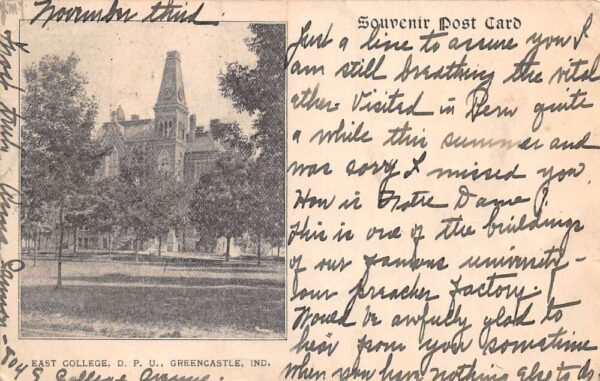 November third.
Souvenir Post Card
Just a line to assure you I
am still breathing the vital
ether. Visited in Peru quite
a while this summer and
was sorry I missed you.
How is Notre Dame?
This is one of the buildings
of our famous university -
our preacher factory.
Would be awfully glad to
hear from you sometime
when you have nothing else to do.
EAST COLLEGE, D. P. U., GREENCASTLE, IND.
Most truly
504 E College Avenue.